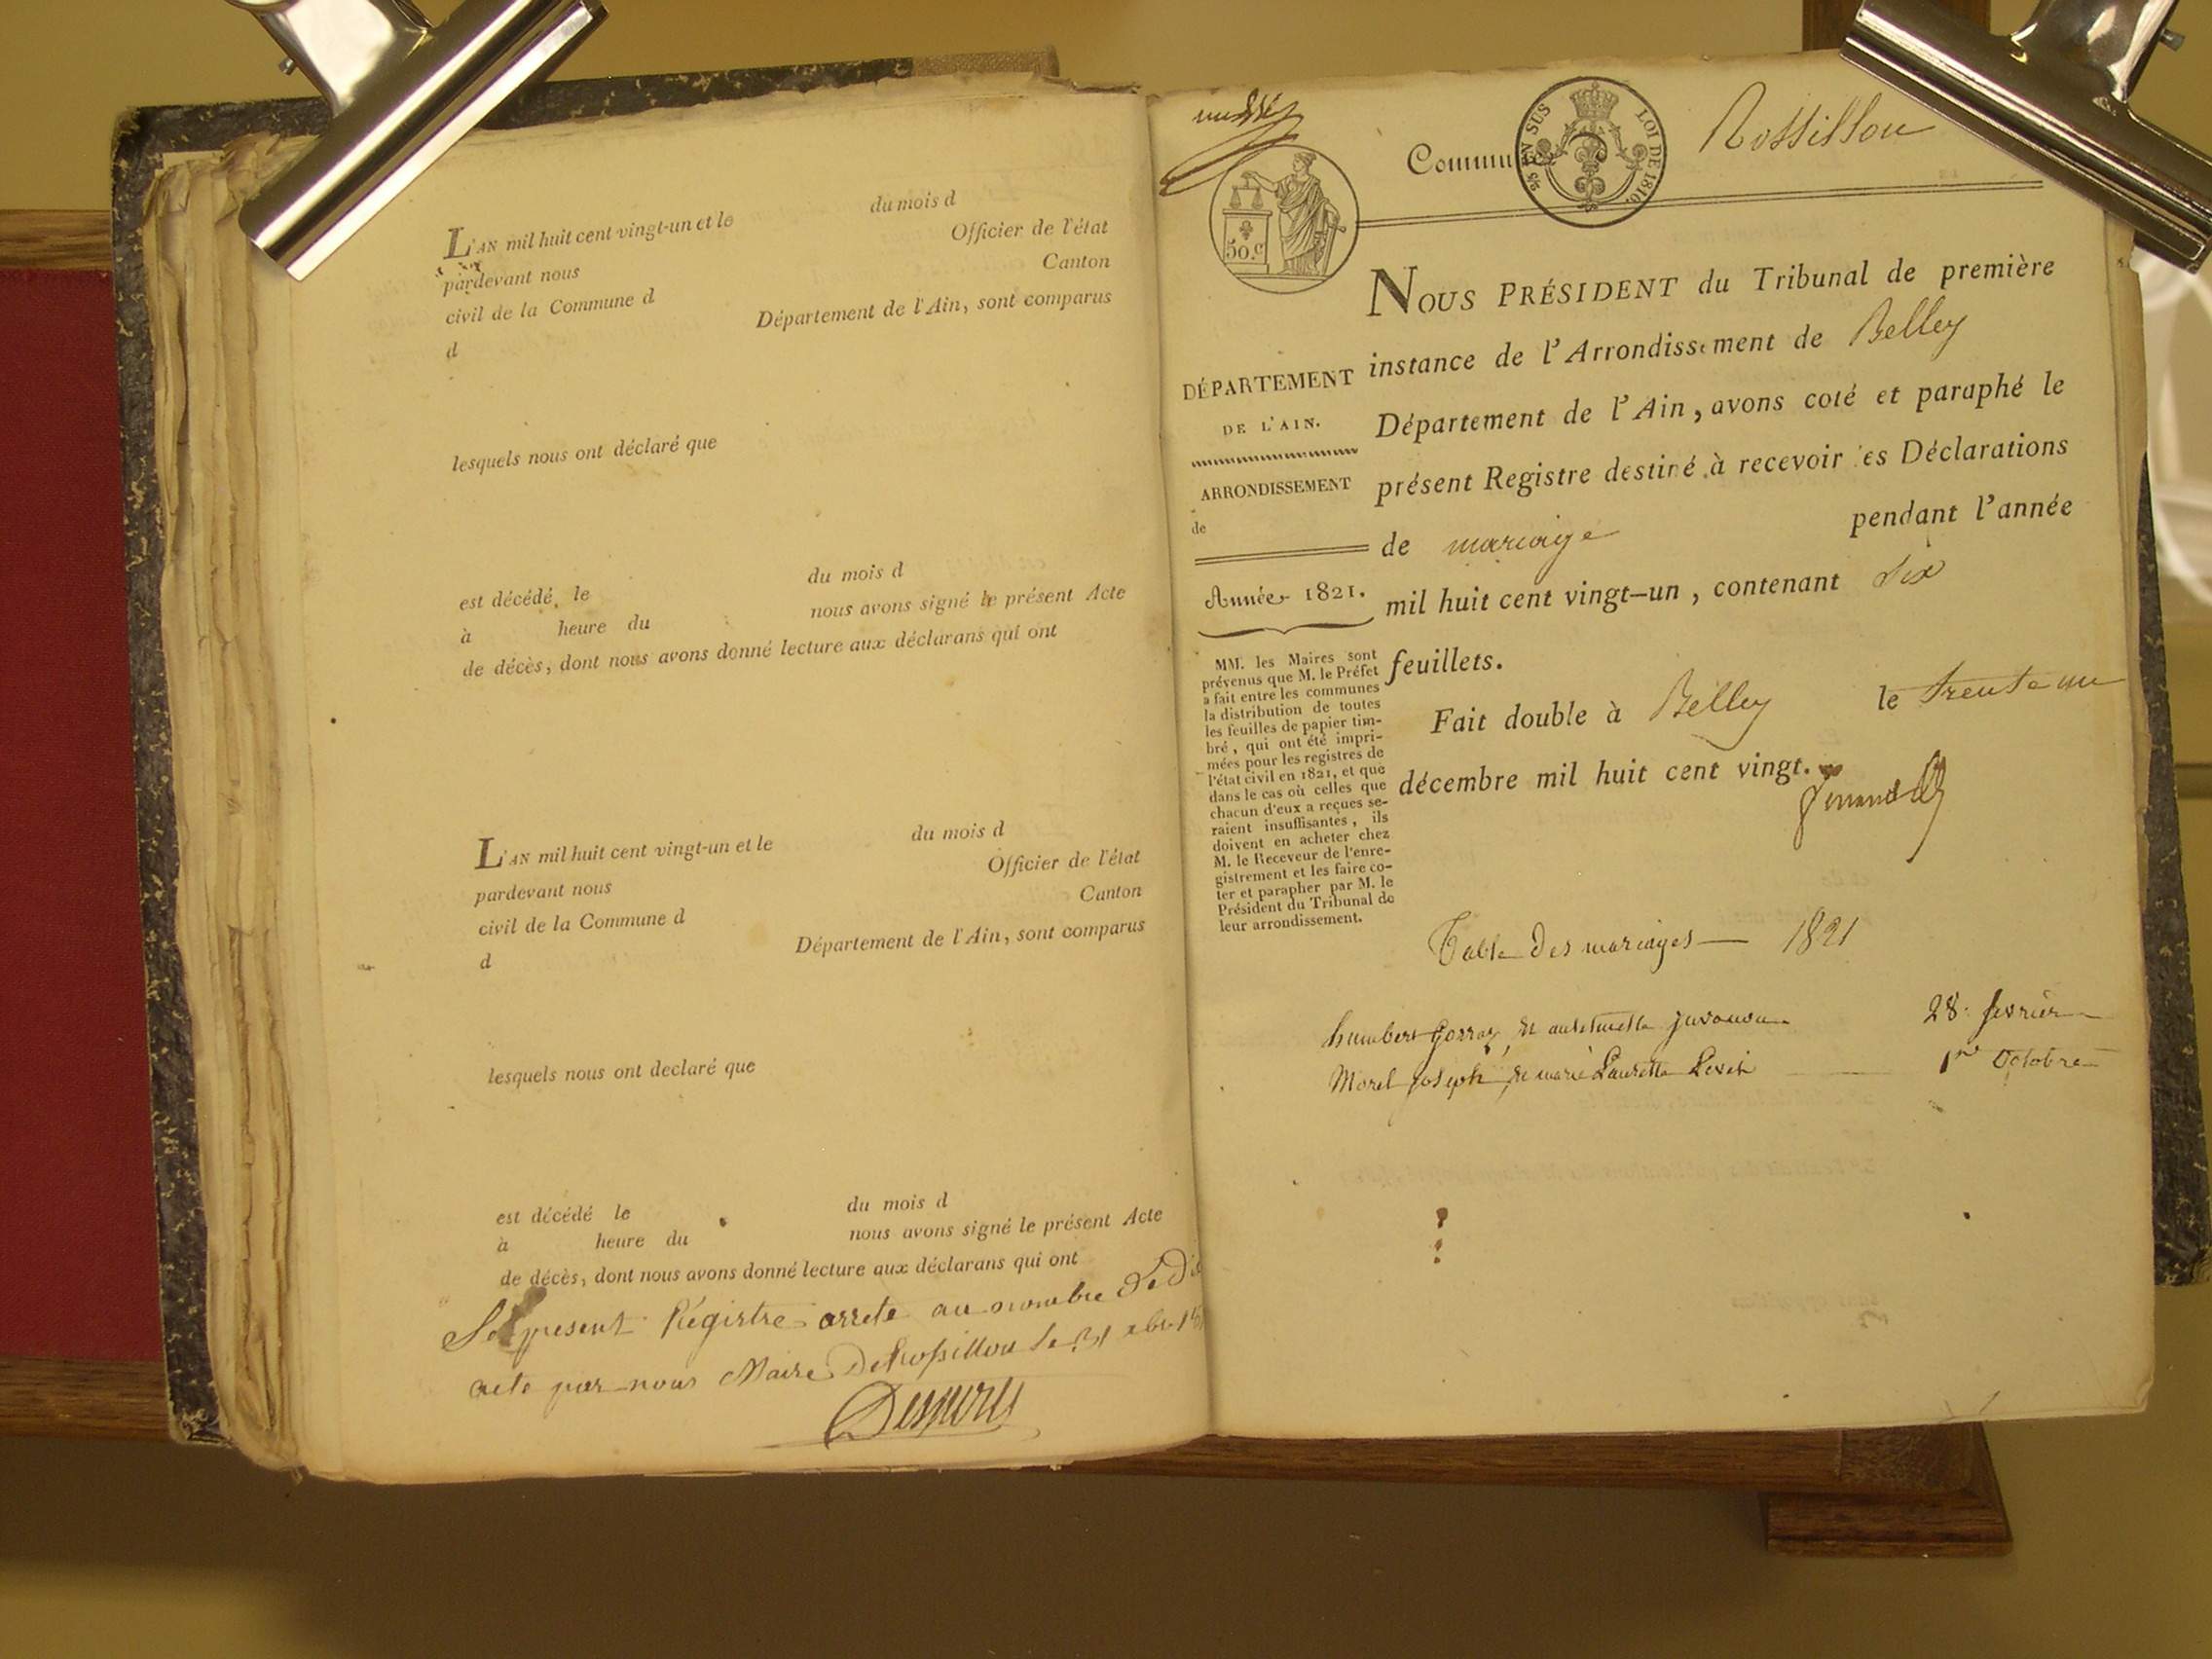 L'AN mil huit cent vingt-un et le du mois d
pardevant nous Officier de l'état
civil de la Commune d Canton
d Département de l'Ain, sont comparus
lesquels nous ont déclaré que
est décédé, le du mois d
à heure du nous avons signé le présent Acte
de décès, dont nous avons donné lecture aux déclarans qui ont
L'AN mil huit cent vingt-un et le du mois d
pardevant nous Officier de l'état
civil de la Commune d Canton
d Département de l'Ain, sont comparus
lesquels nous ont declaré que
est décédé le du mois d
à heure du nous avons signé le présent Acte
de décès, dont nous avons donné lecture aux déclarans qui ont
present Régistre arreté au nombre De
acte par nous Maire De Rossillon le 31
Commune Rossillon
EN SUS
LOI DE 1816.
50.c
NOUS PRÉSIDENT du Tribunal de première
instance de l'Arrondissement de Belley
Département de l'Ain, avons coté et paraphé le
présent Registre destiné à recevoir es Déclarations
de mariage pendant l'année
mil huit cent vingt-un, contenant Six
feuillets.
Fait double à Belley le trente un
décembre mil huit cent vingt.
DÉPARTEMENT
DE L'AIN.
ARRONDISSEMENT
de
Année 1821.
MM. les Maires sont
prévenus que M. le Préfet
a fait entre les communes
la distribution de toutes
les feuilles de papier tim-
bré, qui ont été impri-
mées pour les registres de
l'état civil en 1821, et que
dans le cas où celles que
chacun d'eux a reçues se-
raient insuffisantes, ils
doivent en acheter chez
M. le Receveur de l'enre-
gistrement et les faire co-
ter et parapher par M. le
Président du Tribunal de
leur arrondissement.
Table Des mariages 1821
humbert Gorraz, et antoinette 28. fevrier
Morel Joseph, et marie Laurette 1er Octobre